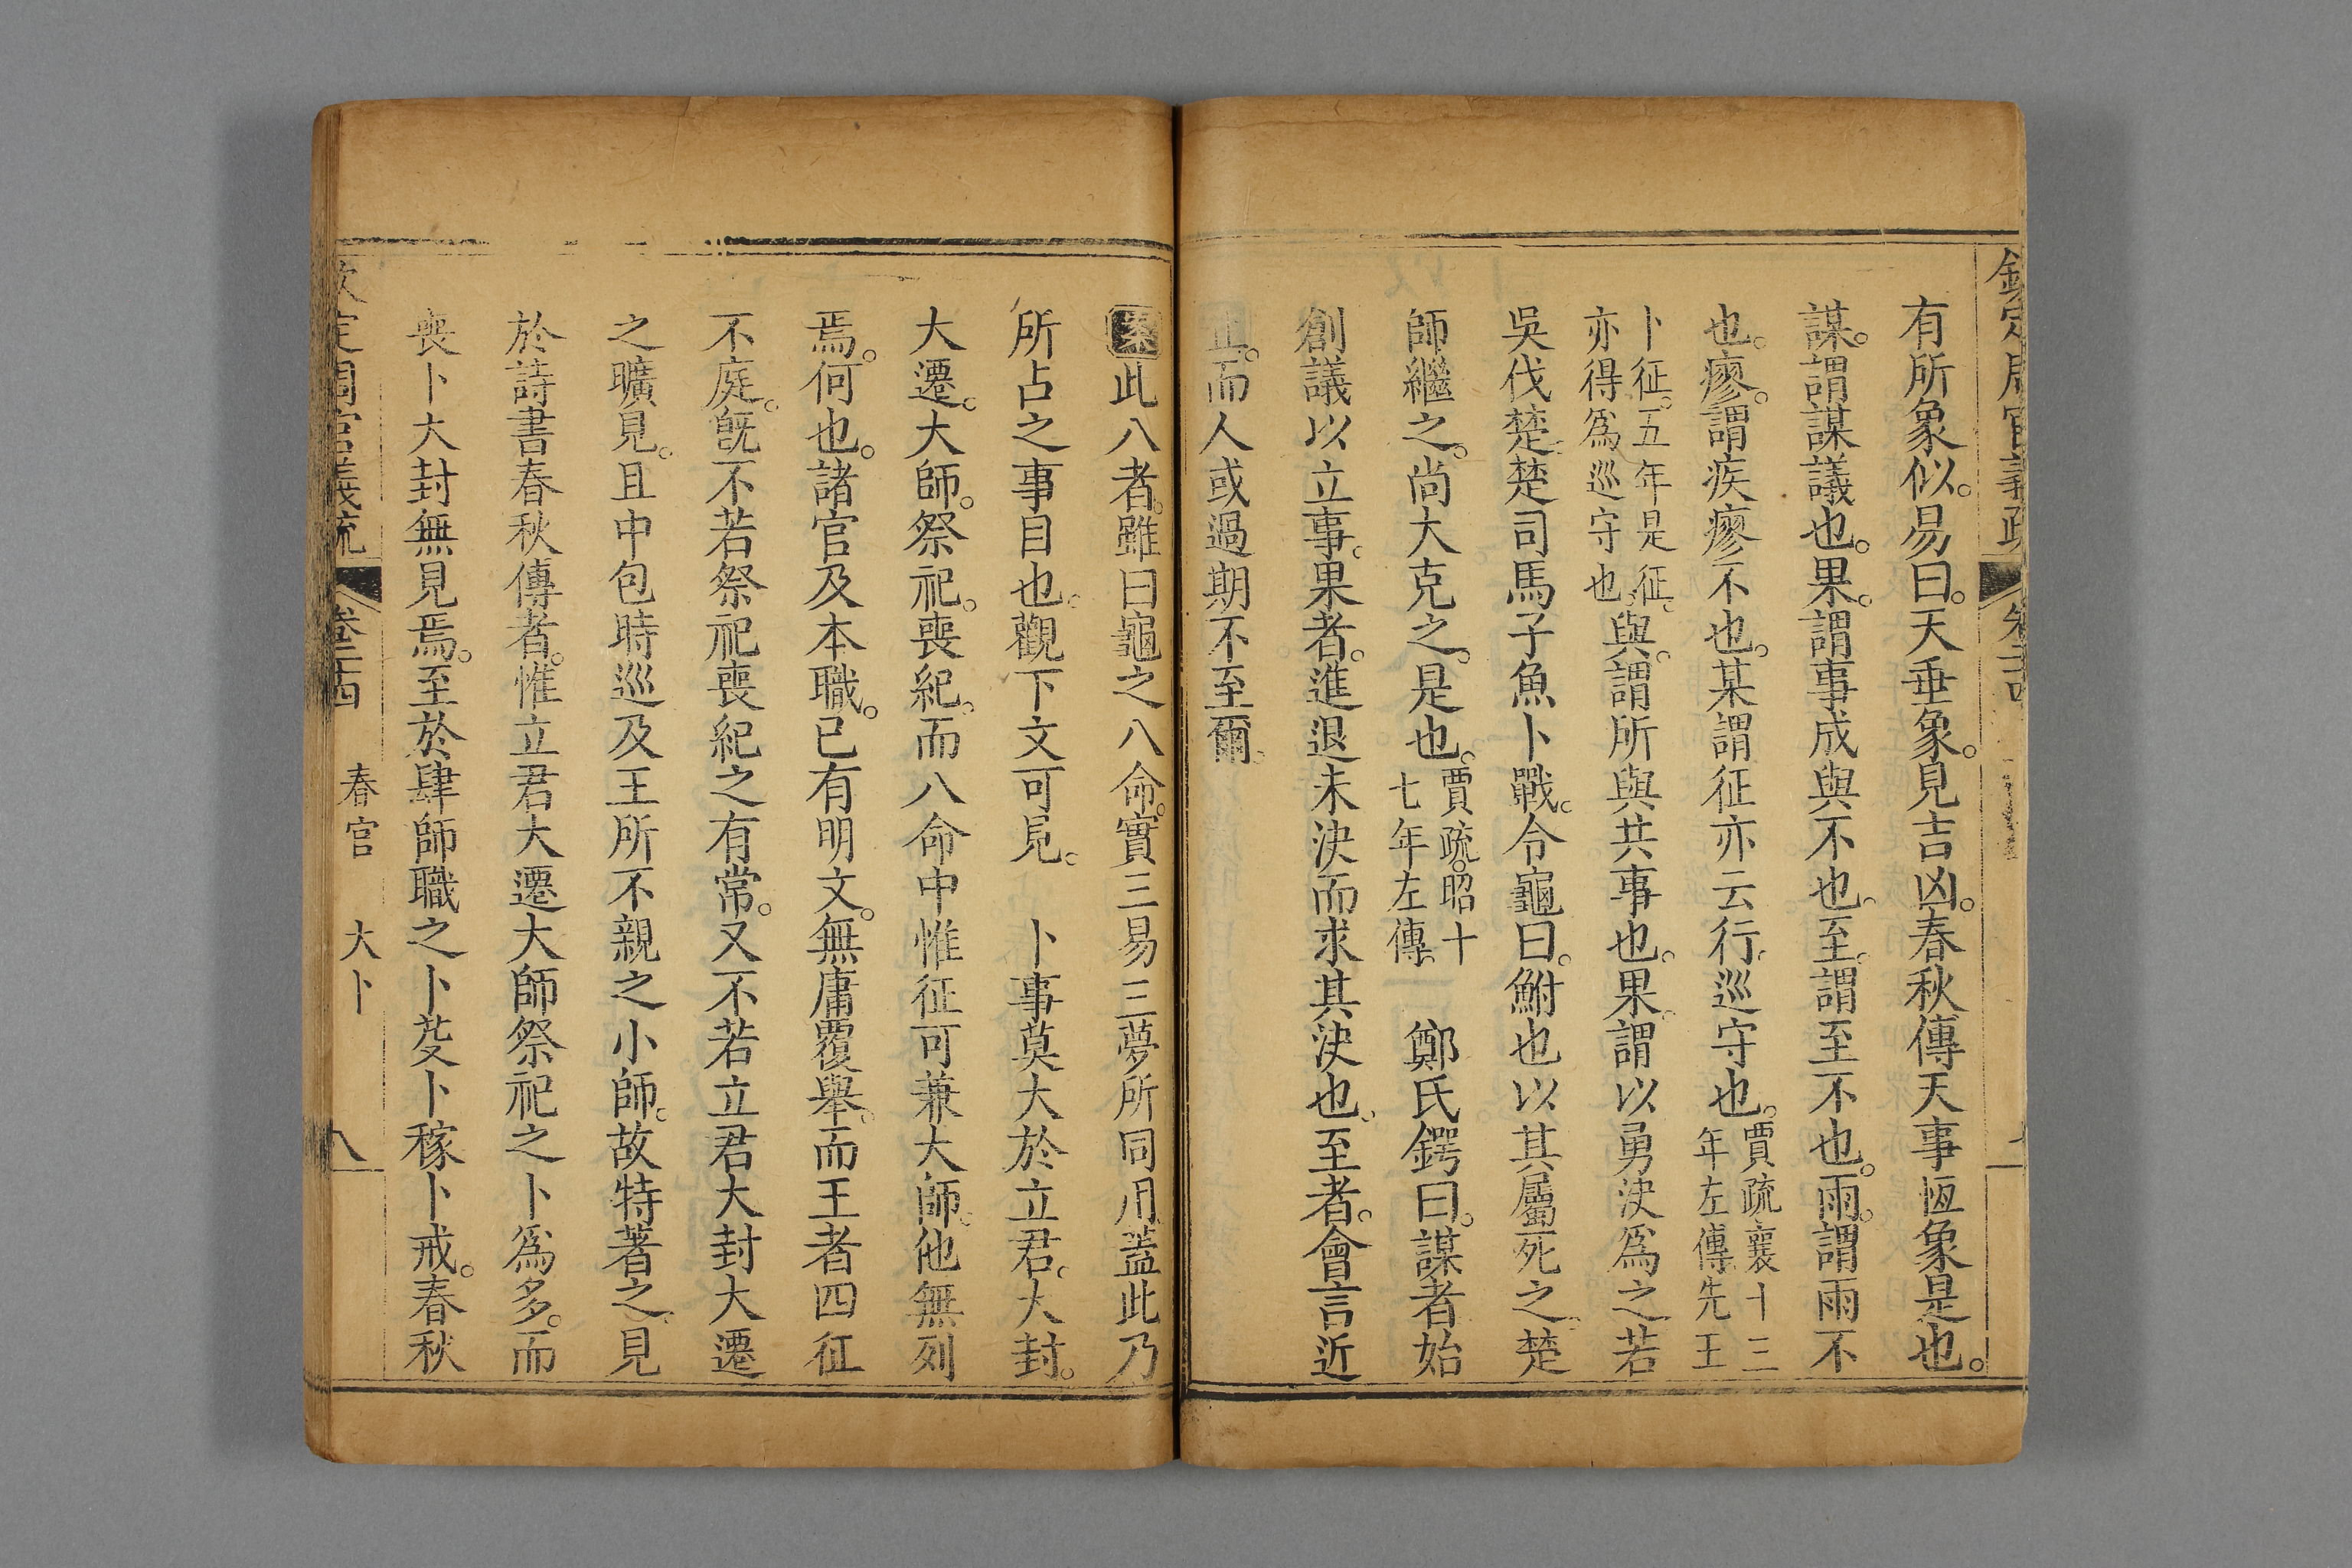 有所象似。易曰。天垂象。見吉凶。春秋傳天事恆象是也。
謀。謂謀議也。果。謂事成與不也。至。謂至不也。雨。謂雨不
也。瘳。謂疾瘳不也。某謂征亦云行。巡守也。賈疏襄十三年左傳。先王
卜征。五年是征。亦得爲巡守也。與。謂所與共事也。果。謂以勇決爲之。若
吳伐楚。楚司馬子魚卜戰。令龜曰。鮒也以其屬死之。楚
師繼之。尚大克之。是也。賈疏。昭十七年左傳。 鄭氏鍔曰。謀者始
創議以立事。果者。進退未決而求其決也。至者。會言近
止。而人或過期不至爾。
案此八者。雖曰龜之八命。實三易三夢所同用。蓋此乃
所占之事目也。觀下文可見。 卜事莫大於立君。大封。
大遷。大師。祭祀。喪紀。而八命中惟征可兼大師。他無列
焉。何也。諸官及本職。已有明文。無庸覆舉。而王者四征
不庭。旣不若祭祀喪紀之有常。又不若立君大封大遷
之曠見。且中包時巡及王所不親之小師。故特著之。見
於詩書春秋傳者。惟立君大遷大師祭祀之卜爲多。而
喪卜大封無見焉。至於肆師職之卜芟卜稼卜戒。春秋
定周官義疏 卷二十四 春官 大卜 八